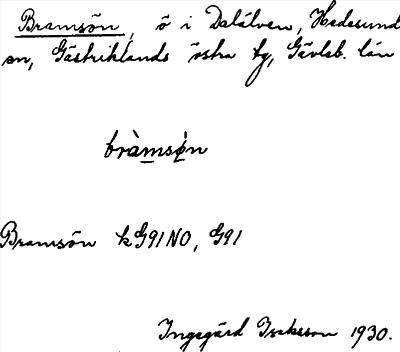 Bramsön, ö i Dalälven, Hedesunda
sn, Gästriklands östra tg, Gävleb. län
bràmsö́n
Bramsön k G91NO, G91
Ingegärd Isaksson 1930.